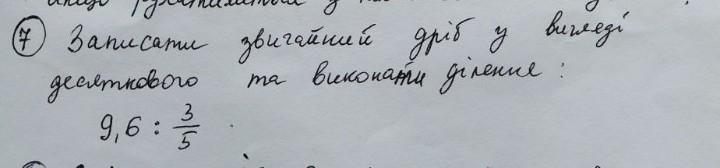 7 Записати звичайний дріб у вигляді
десяткового та виконати ділення:
9,6 : 3/5